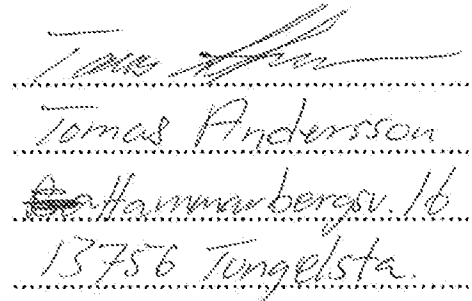 Tomas Andersson
Hammarbergsv. 16
13756 Tungelsta.